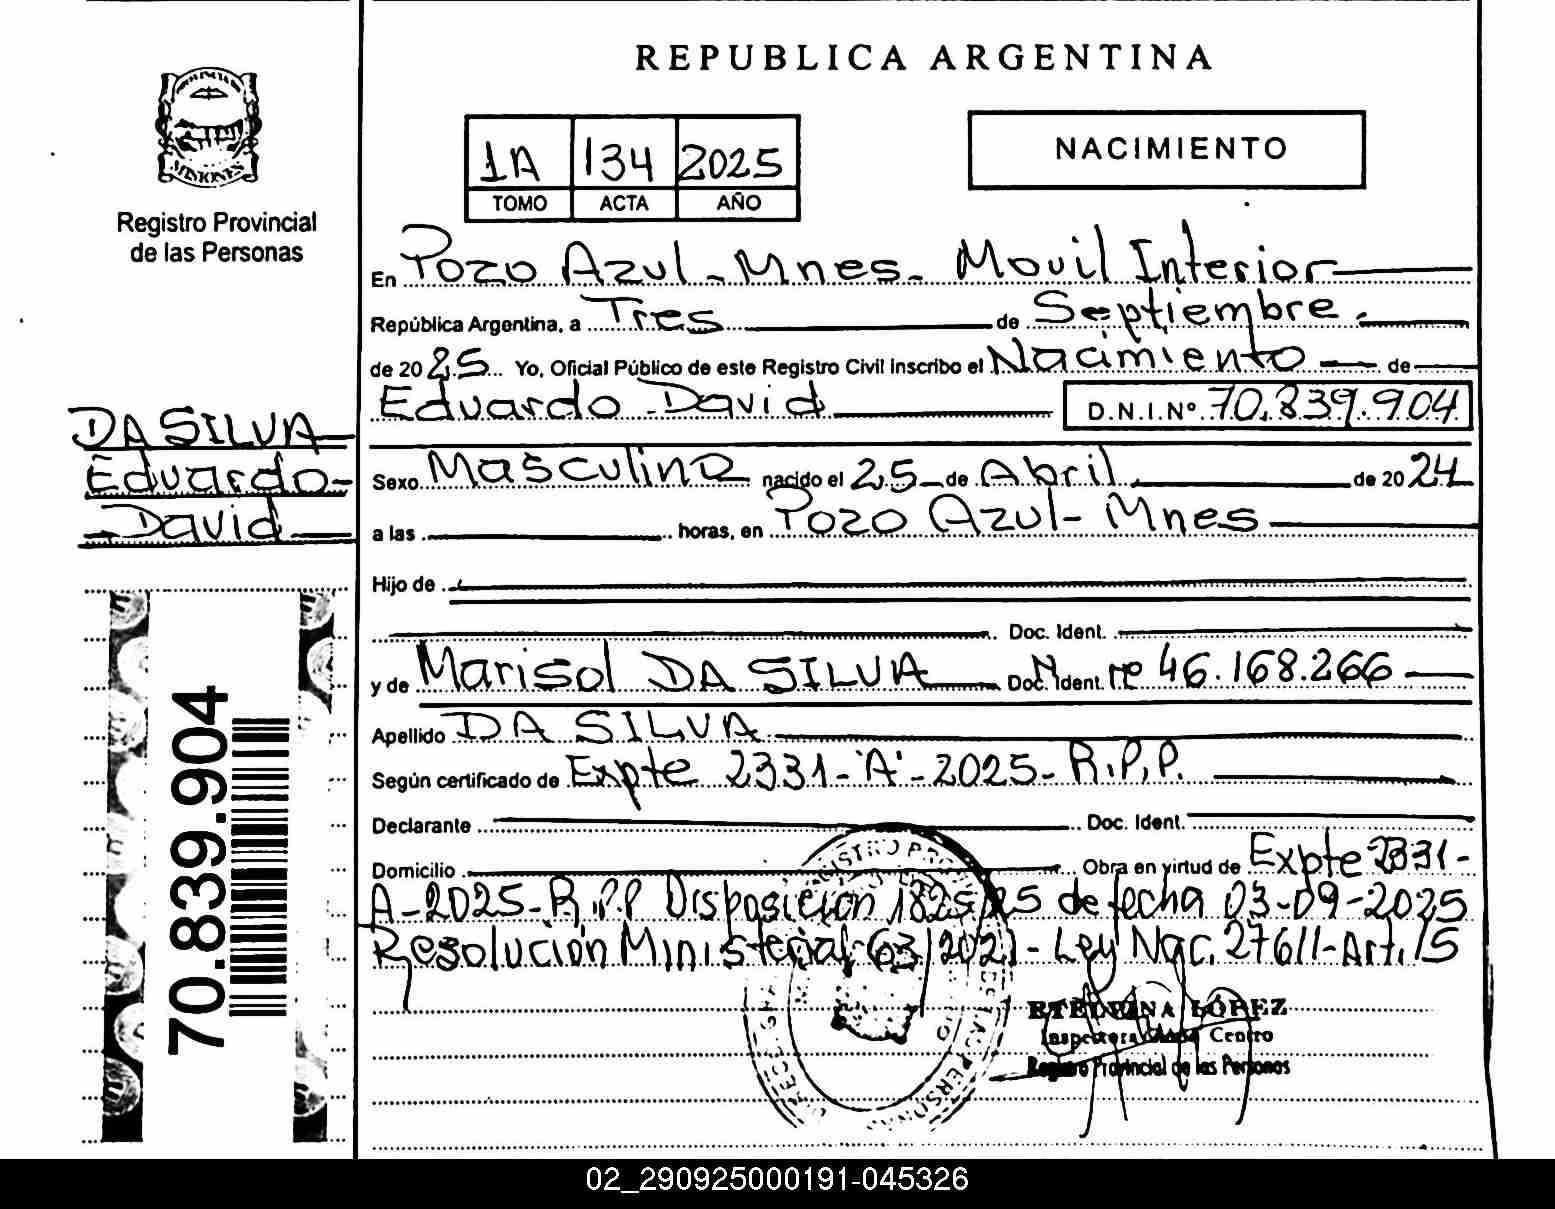 REPUBLICA ARGENTINA
MISIONES
Registro Provincial
de las Personas
1A 134 2025
TOMO ACTA AÑO
NACIMIENTO
En Pozo Azul - Mnes - Movil Interior
República Argentina, a Tres de Septiembre
de 2025 Yo, Oficial Público de este Registro Civil Inscribo el Nacimiento de
Eduardo David D.N.I.Nº 70.839.904
DA SILVA
Eduardo
David
Sexo Masculino nacido el 25 de Abril de 2024
a las horas, en Pozo Azul - Mnes
Hijo de
Doc. Ident.
y de Marisol DA SILVA Doc. Ident. Nº 46.168.266
Apellido DA SILVA
Según certificado de Expte 2331-"A"-2025-R.P.P.
Declarante Doc. Ident.
Domicilio Obra en virtud de Expte 2331-
A-2025-R.P.P Disposición de fecha 03-09-2025
Resolución Ministerial 63/2021 - Ley Nac. 27611-Art. 15
70.839.904
ETELVINA LÓPEZ
Inspectora Zona Centro
Registro Provincial de las Personas
02_290925000191-045326